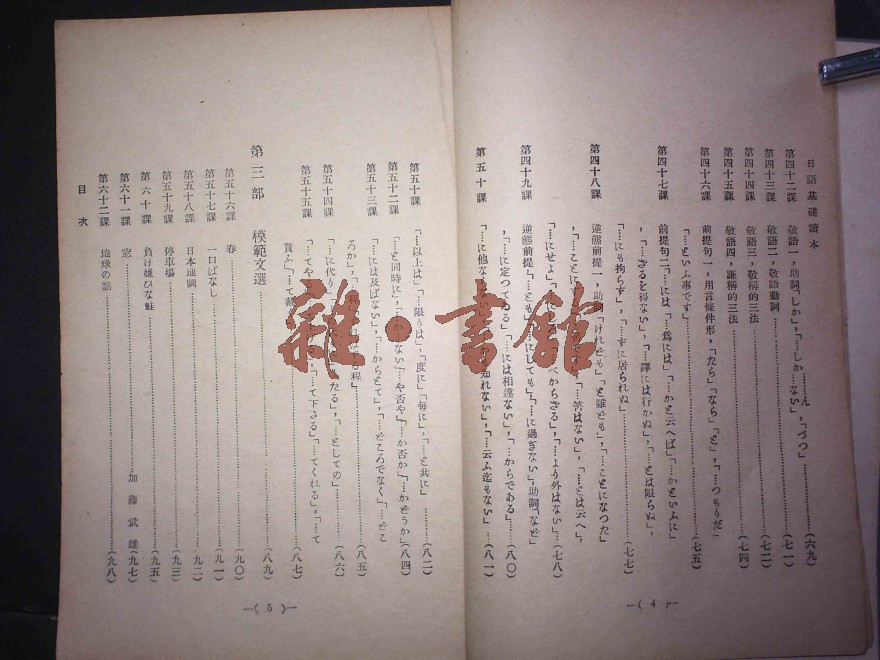 日語基礎讀本
第四十二課　敬語一，助詞「しか」，「…しか…ない」「……ん」，「づつ」……(六九)
第四十三課　敬語二，敬語動詞……(七一)
第四十四課　敬語三，敬稱的三法……(七二)
第四十五課　敬語四，謙稱的三法……(七四)
第四十六課　前提句一，用言條件形，「たら」「なら」「と」，「…つもりだ」
「…といふ事です」……(七五)
第四十七課　前提句二，「…には」「…爲には」「…かと云へば」「…かといふに」
，「…ざるを得ない」，「…譯には行かぬ」，「…とは限らぬ」，
「…にも拘らず」，「…ずに居られぬ」……(七七)
第四十八課　逆態前提一，助詞「けれども」「と雖ども」，「…ことになつた」
，「…ことに」「…筈はない」，「…とは云へ」，
「…にせよ」「べからざる」，「…より外はない」……(七八)
第四十九課　逆態前提「…とも」「…にしても」，「…に過ぎない」，助詞「など」
，「…に定つてゐる」「…には相違ない」，「…からである」……(八〇)
第五十課　「…に他なら」「知れない」，「…云ふ迄もない」……(八一)
—( 4 )—
第五十課　「…以上は」「…限りは」，「度に」「毎に」，「…と共に」……(八二)
第五十二課　「…と同時に」，「ない」「…や否や」，「…か否か」「…かどうか」(八四)
第五十三課　「…には及ばない」，「…からとて」，「…どころでなく」「…どこ
ろか」，「程」……(八五)
第五十四課　「…に代り」「たる」，「…としての」……(八六)
第五十五課　「…てや」，「…て下さる」「…てくれる」，「…て
貰ふ」「…て戴」……(八七)
第三部　模範文選……(八九)
第五十六課　春……(九〇)
第五十七課　一口ばなし……(九一)
第五十八課　日本地圖……(九二)
第五十九課　停車場……(九三)
第六十課　負け嫌ひな蛙……(九五)
第六十一課　窓……加藤武雄(九七)
第六十二課　地球の話……(九八)
目次
—( 5 )—
雜·書館